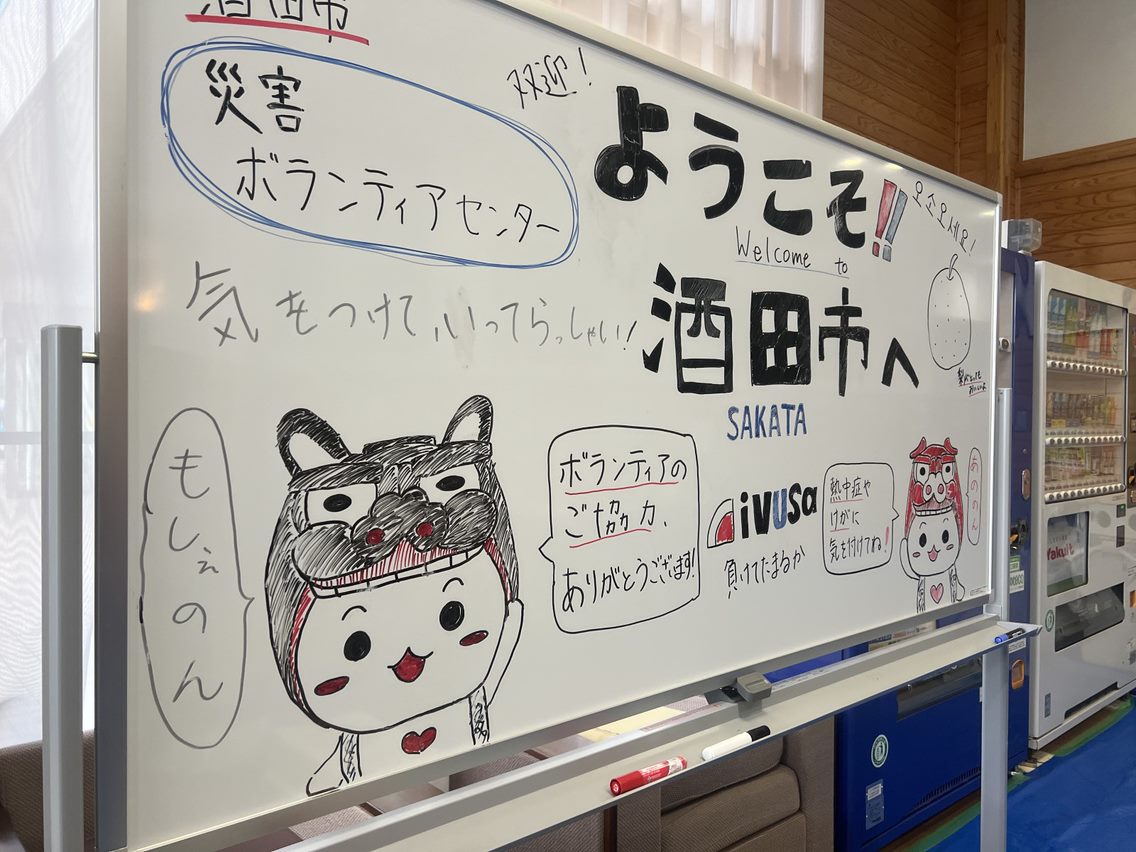 酒田市
災害
ボランティアセンター
双迎!
ようこそ!!
오소오세요!
Welcome to
酒田市へ
SAKATA
気をつけていってらっしゃい!
もしぇのん
ボランティアの
ご協力、
ありがとうございます!
iVUSa
負けてたまるか
熱中症や
けがに
気を付けてね!
あののん
Yakult